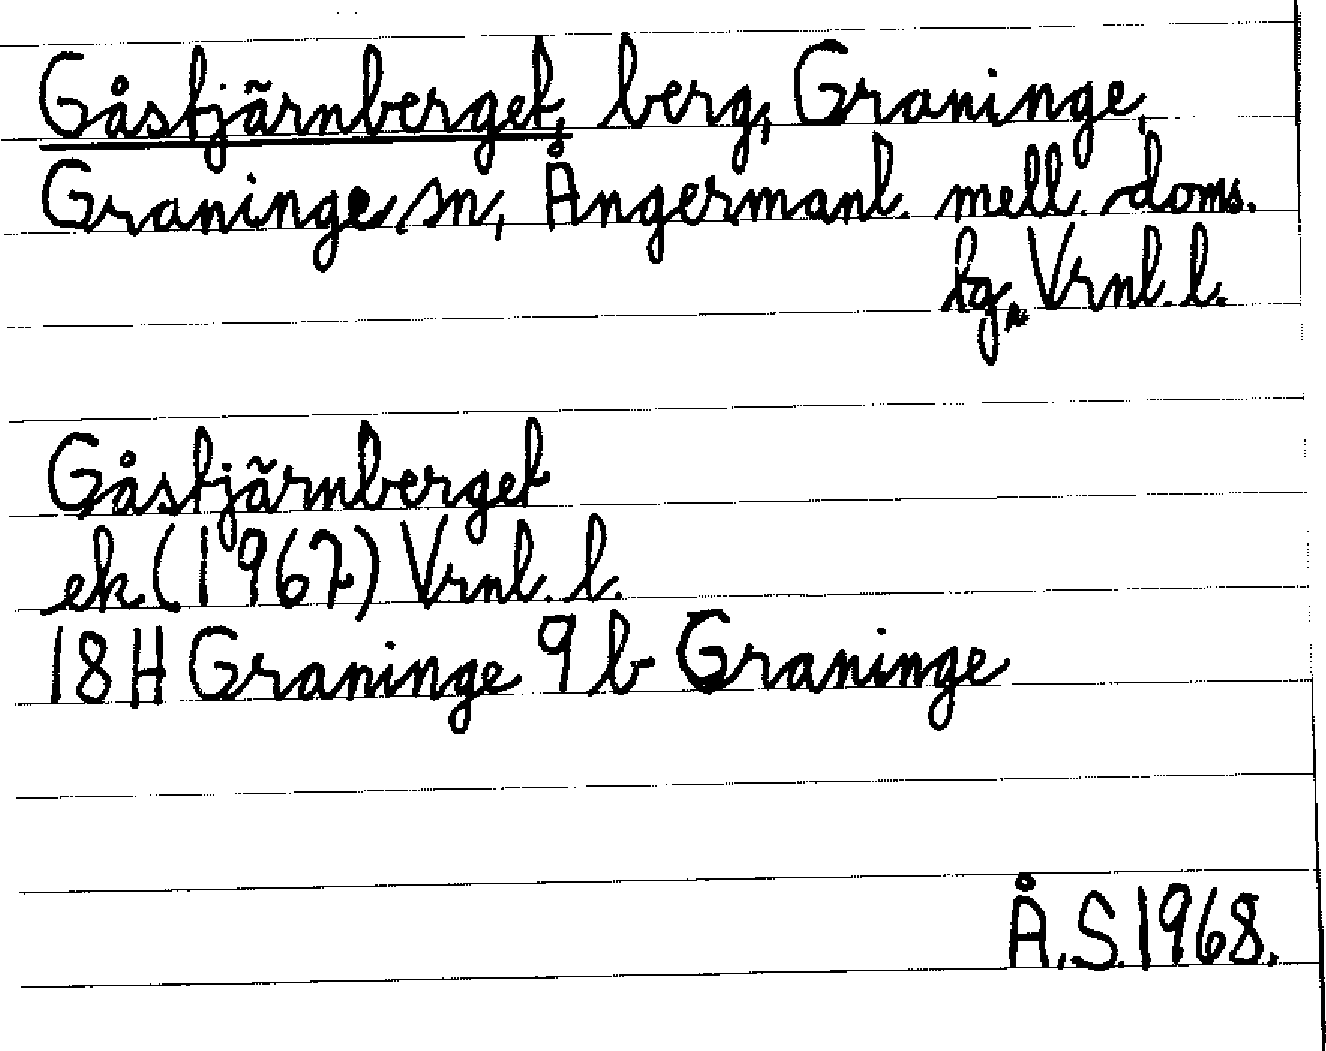 Gåstjärnberget, berg, Graninge,
Graninge sn, Ångermanl. mell. doms.
lg, Vrnl. l.
Gåstjärnberget
ek (1967) Vrnl. l.
18H Graninge 9b Graninge
Å.S. 1968.